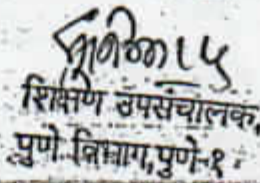 शिक्षण उपसंचालक,
पुणे विभाग,पुणे-१